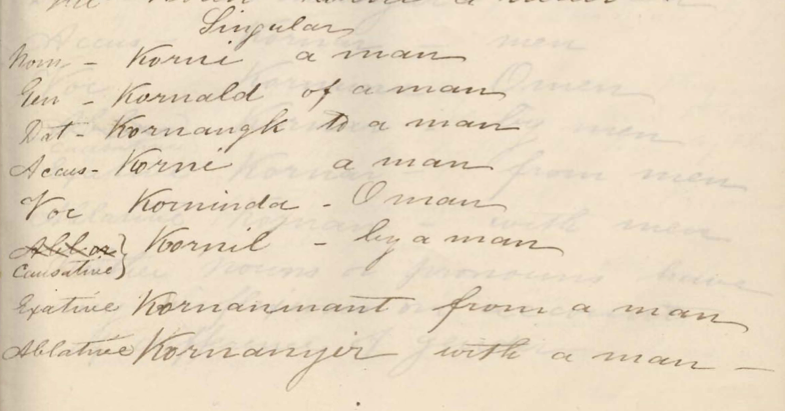 Singular
Nom - Korni a man
Gen - Kornald of a man
Dat - Kornangk to a man
Accus - Korni a man
Voc Korninda - O man
Abl or
Causative} Kornil - by a man
Exative Kornanmant from a man
Ablative Kornanyir with a man -